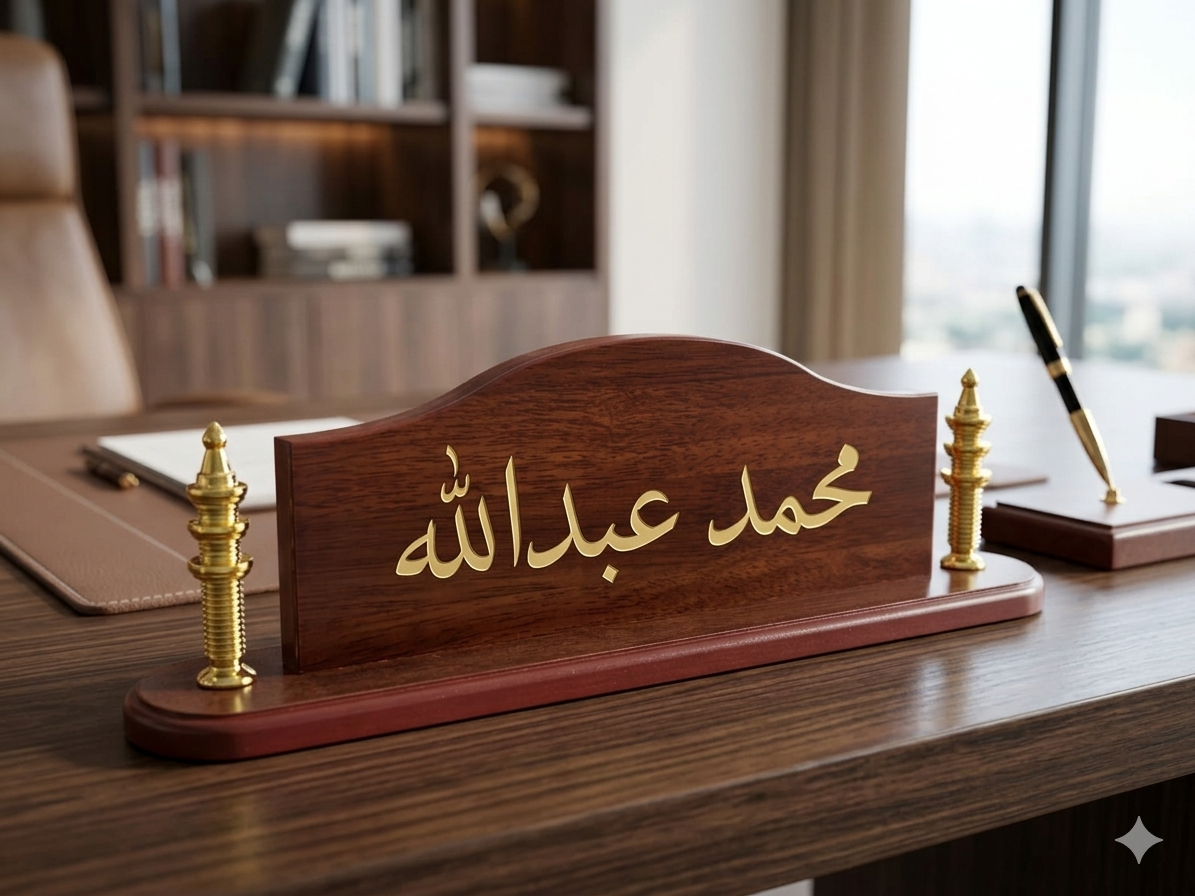 محمد عبدالله